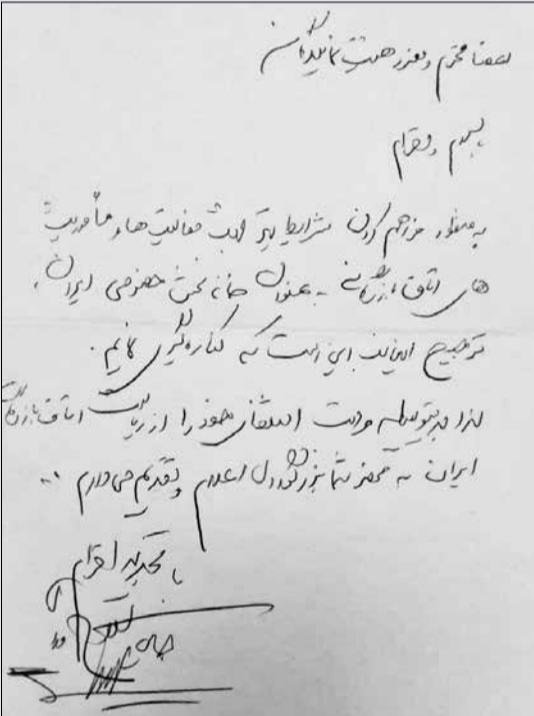 اعضا محترم و معزز هیئت نمایندگان
با سلام و احترام
به منظور فراهم کردن شرایط بهتر فعالیت ها و مأموریت
های اتاق بازرگانی به عنوان خانه بخش خصوصی ایران،
ترجیح اینجانب این است که کناره گیری نمایم.
لذا بدینوسیله مراتب استعفای خود را از ریاست اتاق بازرگانی
ایران به محضر شما بزرگواران اعلام و تقدیم می دارم ...
با تجدید احترام